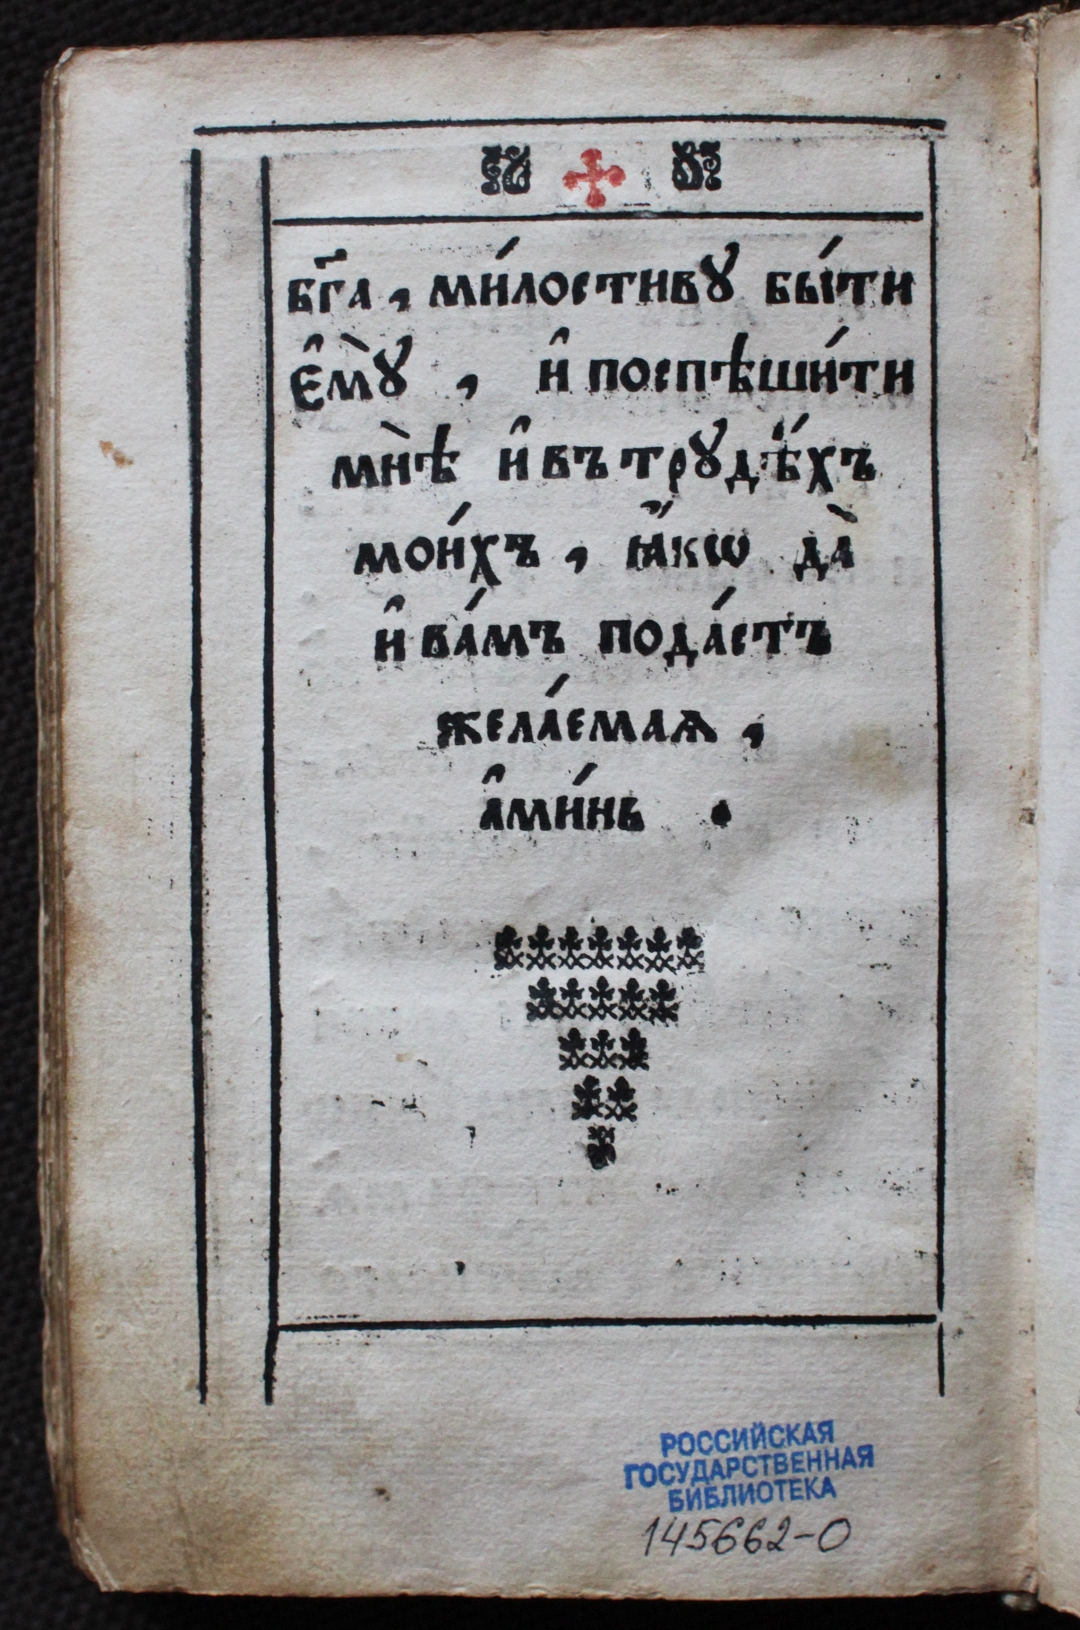 бг҃а , ми́лостивꙋ бы́ти
є҆мꙋ̀ , и҆ поспѣши́ти
мнѣ̀ и҆ въ трꙋдѣ́хъ
мои́хъ , ꙗ҆́кѡ да̀
и҆ ва́мъ пода́стъ
жела́емаѧ ,
а҆ми́нь .
РОССИЙСКАЯ
ГОСУДАРСТВЕННАЯ
БИБЛИОТЕКА
145662-О